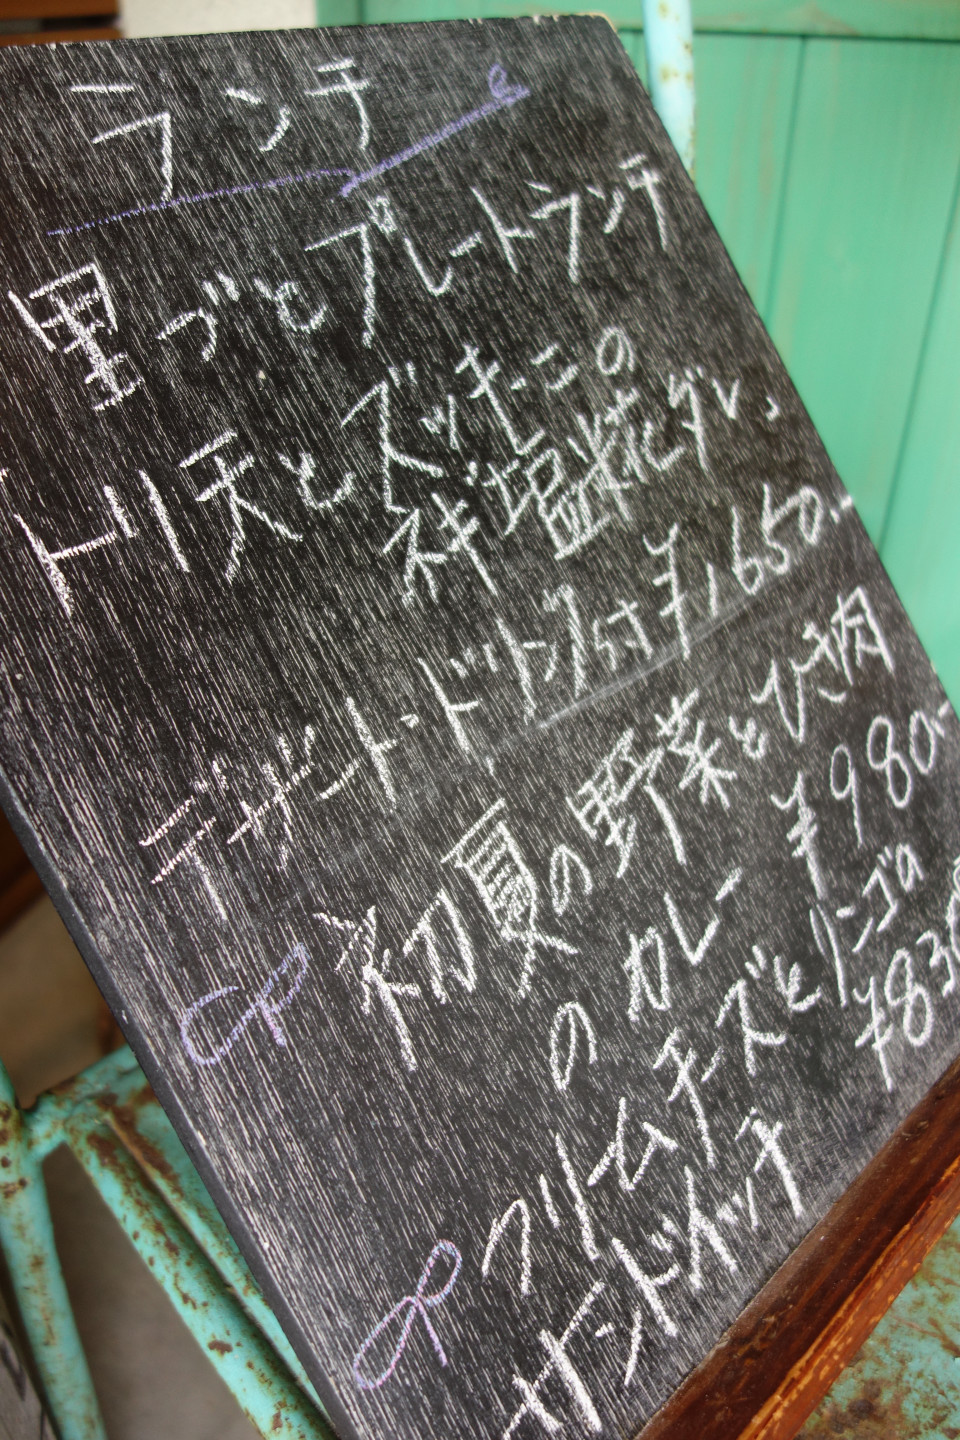 ランチ
里ごとプレートランチ
トリ天とズッキーニの
ネギ塩糀ダレ
デザート・ドリンク付 ¥1650.-
初夏の野菜とひき肉
のカレー ¥980.-
クリームチーズとリンゴの
サンドイッチ ¥830